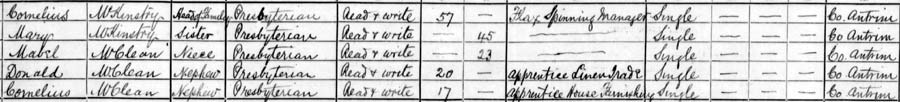 Cornelius McKinstry Head of Family Presbyterian Read & write 57 — Flax Spinning Manager Single — — — Co. Antrim
Mary McKinstry Sister Presbyterian Read & write — 45 — Single — — — Co. Antrim
Mabel McClean Niece Presbyterian Read & write — 23 — Single — — — Co. Antrim
Donald McClean Nephew Presbyterian Read & write 20 — apprentice Linen Trade Single — — — Co. Antrim
Cornelius McClean Nephew Presbyterian Read & write 17 — apprentice House Furnishing Single — — — Co. Antrim